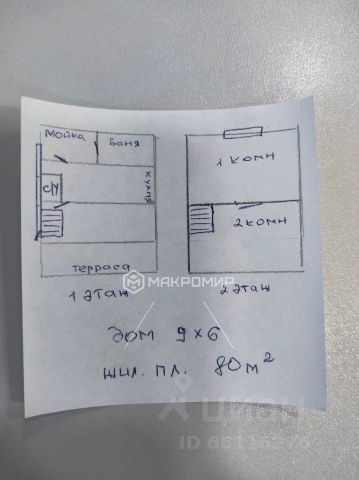 Мойка Баня
Кухня
СУ
Терраса
1 этаж
1 комн
2 комн
2 этаж
МАКРОМИР
Дом 9х6
жил. пл. 80 м²
циан